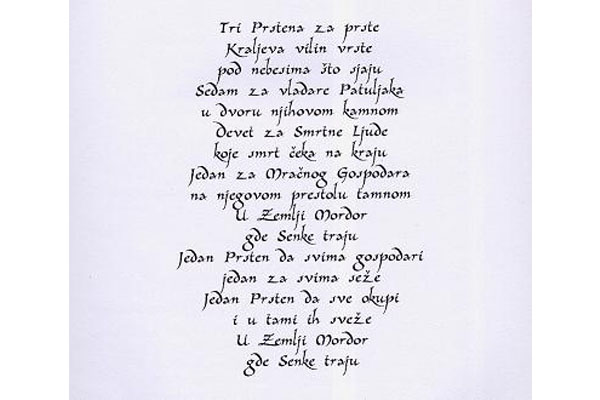 Tri Prstena za prste
Kraljeva vilin vrste
pod nebesima što sjaju
Sedam za vladare Patuljaka
u dvoru njihovom kamnom
Devet za Smrtne Ljude
koje smrt čeka na kraju
Jedan za Mračnog Gospodara
na njegovom prestolu tamnom
U Zemlji Mordor
gde Senke traju
Jedan Prsten da svima gospodari
jedan za svima seže
Jedan Prsten da sve okupi
i u tami ih sveže
U Zemlji Mordor
gde Senke traju